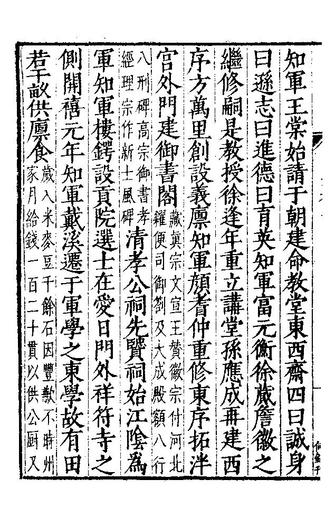 知軍王棠始請于朝建命教堂東西齋四曰誠身
曰遜志曰進德曰育英知軍富元衡徐蕆詹徽之
繼修嗣是教授徐逢年重立講堂孫應成再建西
序方萬里創設義廪知軍顔耆仲重修東序拓泮
宮外門建御書閣藏真宗文宣王贊徽宗付河北
糴便司御劄及大成殿額八行
八刑碑高宗御書孝
經理宗作新士風碑清孝公祠先賢祠始江陰為
軍知軍樓鍔設貢院選士在愛日門外祥符寺之
側開禧元年知軍戴溪遷于軍學之東學故有田
若干畝供廪食歲入米麥豆千餘石因豐歉不時州
家月給錢一百二十貫以供公厨又